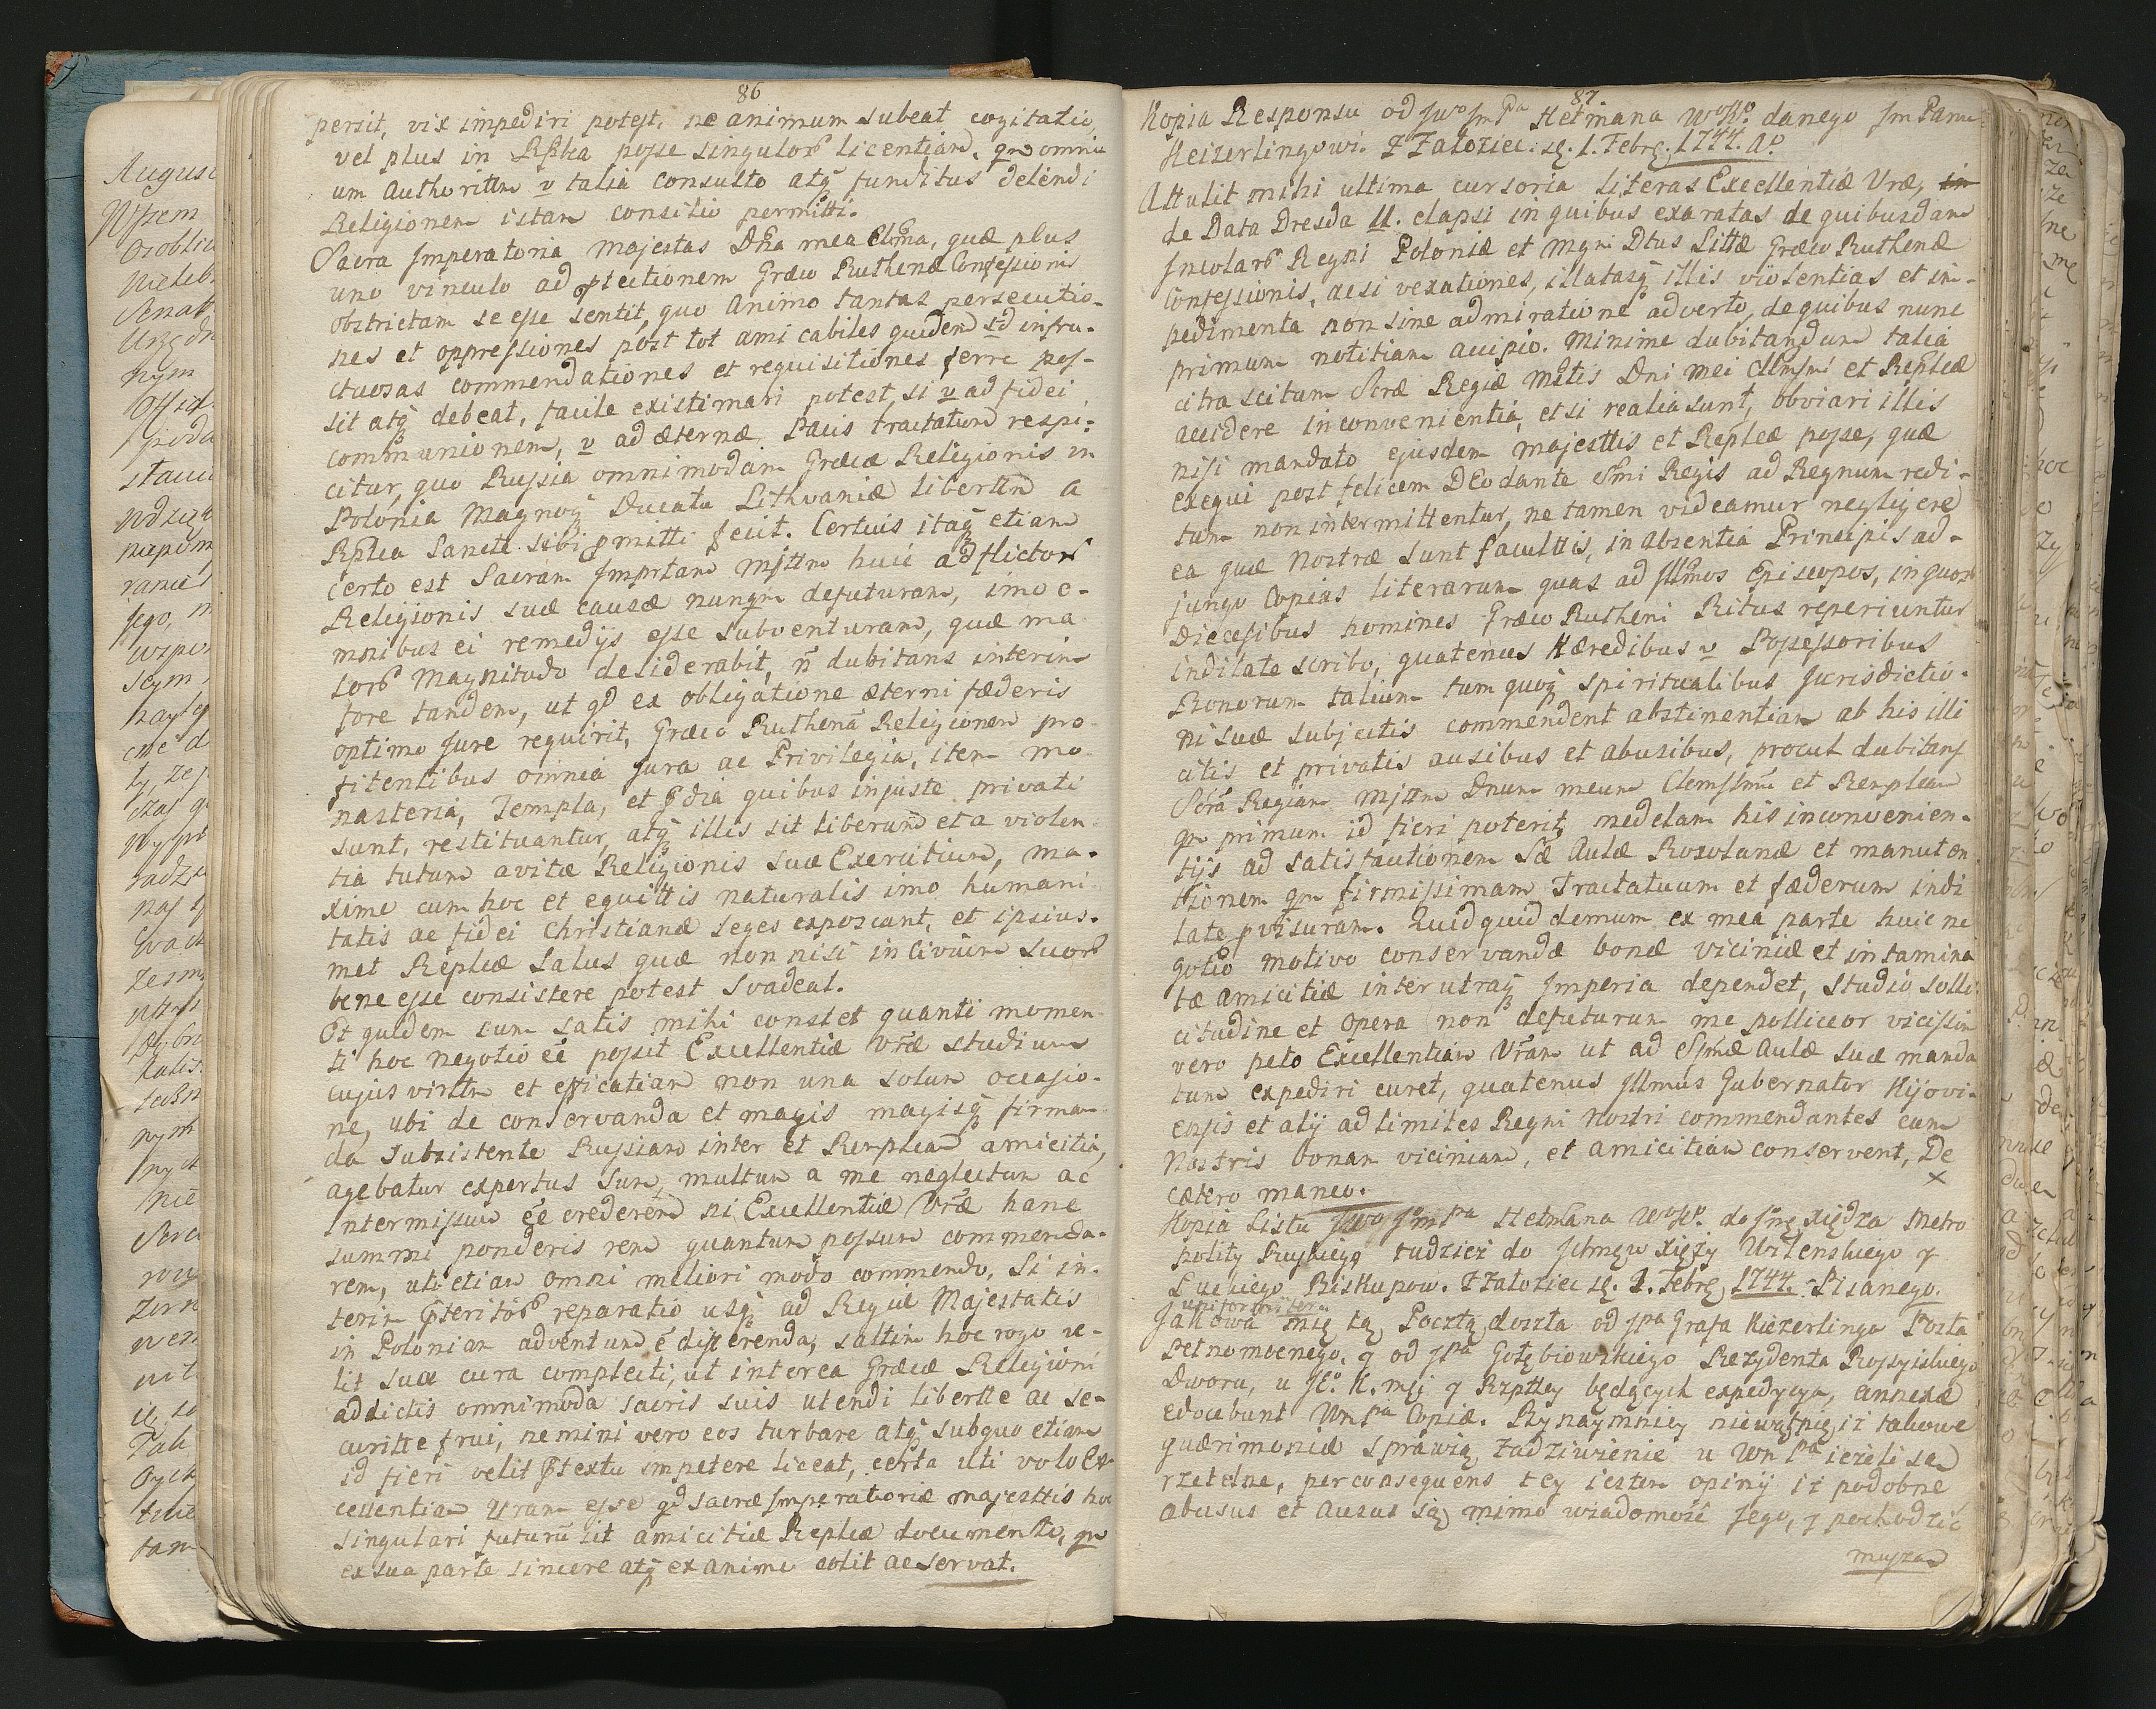 86
persit, vix impediri potest, ne animum subeat cogitatio,
vel plus in Rplca posse singulorũ licentiam, qm omni
um Authorittm v talia consulto atq funditus delendi
Religionem istam consilio permitti.
Sacra Imperatoria Majestas Dña mea Clma, quæ plus
uno vinculo ad ptectionem Græco Ruthenæ Confessionis
obstrictam se esse sentit, quo animo tantas persecutio-
nes et oppressiones post tot amicabiles quidem sd infru-
ctuosas commendationes et requisitiones ferre pos-
sit atq debeat, facile existimari potest, si v ad fidei
communionem, v ad æternæ Pacis tractatum respi-
citur, quo Russia omnimodam Græcæ Religionis in
Polonia Magnoq Ducatu Lithvaniæ libertтm a
Rplca Sancte sibi pmitti fecit. Certuis itaq etiam
certo est Sacram Imprtam Mjttm huic adflictorũ
Religionis suæ causæ nunqm defuturam, imo o-
mnibus ei remedijs esse subventuram, quæ ma
lorũ magnitudo desiderabit, ñ dubitans interim
fore tandem, ut qd ex obligatione æterni fæderis
optimo Jure requirit, Græco Ruthenã Religionem pro
fitentibus omnia Jura ac Privilegia, item mo
nasteria, Templa, et pdia quibus injuste privati
sunt, restituantur, atq illis sit liberum et a violen
tia tutum avitæ Religionis suæ Exercitium, ma-
xime cum hoc et equittis naturalis imo humani
tatis ac fidei Christianæ leges exposcant, et ipsius-
met Repleæ Salus quæ non nisi in Civium suorũ
bene esse consistere potest Svadeat.
Et quidem cum satis mihi constet quanti momen
ti hoc negotio eê possit Excellentiæ Vræ studium
cujus virttm et efficatiam non una solum occasio-
ne, ubi de conservanda et magis magisq firman
da Subsistente Russiam inter et Remplcam amicitia,
agebatur expertus Sum, multum a me neglectum ac
Intermissum eê crederem ni Excellentiæ Vræ hanc
summi ponderis rem quantum possum commenda-
rem, uti etiam omni meliori modo commendo, Si in-
terim pteritorũ reparatio usq ad Regiæ Majestatis
in Poloniam adventum ê differenda, saltim hoc rogo ve-
lit sua cura complecti, ut interea Græcæ Religioni
addictis omnimoda sacris suis utendi libertte ac se-
curitte frui, nemini vero eos turbare atq subquo etiam
id fieri velit ptextu impetere liceat, certa uti volo Ex-
cellentiam Vram esse qd sacræ Imperatoriæ majesttis hoc
singulari futurũ sit amicitiæ Repleæ documento, qm
ex sua parte sincere atq ex animo colit ac servat.
87
Kopia Responsu od Jwo Jm Pa Hetmana WoKo danego Jm Panu
Keizerlingowi. Z Załoziec. sc. 1. Febrs. 1744. Ao.
Attulit mihi ultima cursoria literas Excellentiæ Vræ, in
de Data Dresda 11. elapsi in quibus exaratas de quibusdam
Incolarũ Regni Poloniæ et Mgni Dtus Littæ Græco Ruthenæ
Confessionis, acsi vexationes, illatasq illis violentias et im-
pedimenta non sine admiratione adverto, de quibus nunc
primum notitiam accipio. Minime dubitandum talia
citra scitum Scræ Regiæ Mttis Dni Mei Clmsmi et Repleæ
accidere inconvenientia, et si realia sunt, obviari illis
nisi mandato ejusdem majesttis et Repleæ posse, quæ
exequi post felicem DEo dante Smi Regis ad Regnum redi-
tum non intermittentur, ne tamen videamur negligere
ea quæ Nostræ sunt facultttis, in absentia Principis ad-
jungo Copias literarum quas ad Jllmos Episcopos, in quorũ
Diecesibus homines Græco Rutheni Ritus reperiuntur
indilate scribo, quatenus Hæredibus v Possessoribus
Bonorum talium tum quoq spiritualibus Jurisdictio-
ni suæ subjectis commendent abstinentiam ab his illi
citis et privatis ausibus et abusibus, procul dubitans
Scrã Regiam Mjttm Dnum meum Clemssimũ et Remplcam
qm primum id fieri poterit, medelam his inconvenien-
tijs ad satisfactionem Sæ Aulæ Roxolanæ et manuten
tionem qm firmissimam Tractatuum et fæderum indi
late pvisuram. Quidquid demum ex mea parte huic ne
gotio motivo conservandæ bonæ viciniæ et intamina
tæ amicitiæ inter utraq Imperia dependet, studio solli-
citudine et opera non defuturum me polliceor vicissim
vero peto Excellentiam Vram ut ad Ssmæ Aulæ suæ manda
tum expediri curet, quatenus Jllmus Gubernator Kijovi-
ensis et alij ad limites Regni Nostri commendantes cum
Nostris bonam viciniam, et amicitiam conservent, De
cætero maneo.
Kopia Listu Jwo Jmpa Hetmana WoKo. do Jmę xiędza Metro
polity Ruskiego tudzież do Ichmęw xięży Wileńskiego y
Luckiego Biskupow. Z Załoziec sc. 1. Febrs 1744. Pisanego.
uniformiter.
Jakowa mię tą Pocztą doszła od Jpa Grafa Kiezerlinga Posła
Pełnomocnego, y od Jpa Gołębiowskiego Rezydenta Rossyiskiego
Dworu, u JKo. K. msj y Rzpttey będących expedycya, annexæ
edocebunt WmPa Copiæ. Bynaymniey niewątpię, iż takowe
quærimoniæ sprawią zadziwienie u WmPa ieżeli są
rzetelne, per consequens tey iestem opinij iż podobne
abusus et ausus są mimo wiadomość Jego, y pochodzić
muszą